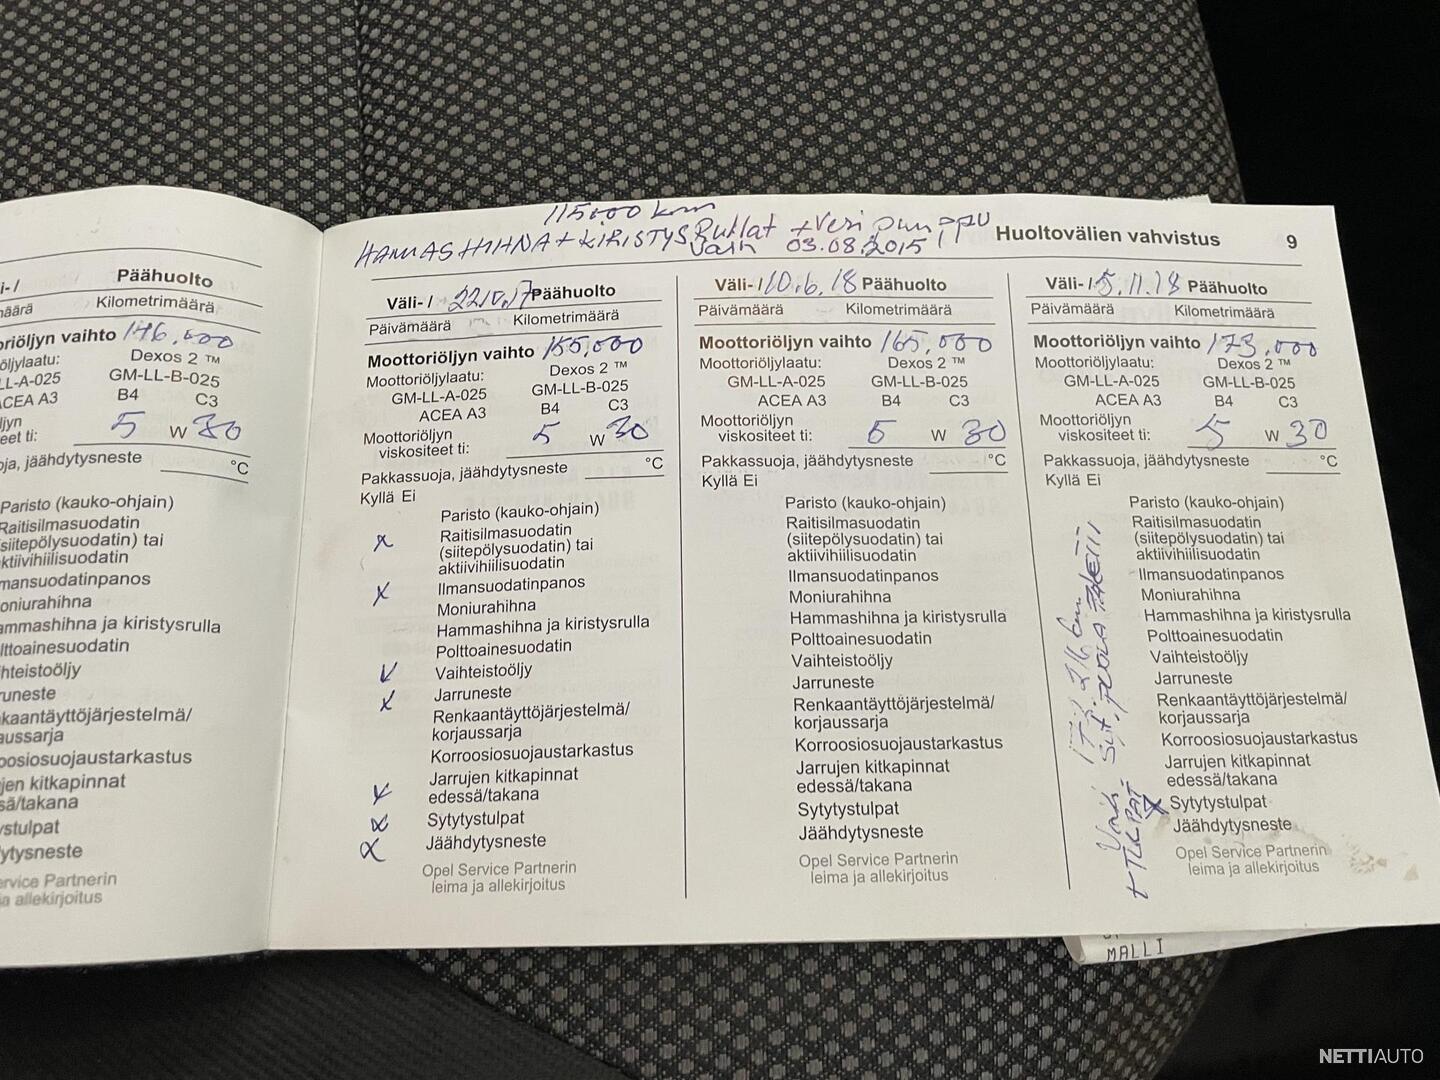 115000 km
HAMMASHIHNA + KIRISTYS Rullat + Vesi pumppu
Vain 03.08.2015
Huoltovälien vahvistus 9
i- / Päähuolto
määrä Kilometrimäärä
oriöljyn vaihto 146,000
öljylaatu: Dexos 2 ™
LL-A-025 GM-LL-B-025
ACEA A3 B4 C3
öljyn
teet ti: 5 W 30
oja, jäähdytysneste °C
Paristo (kauko-ohjain)
Raitisilmasuodatin
(siitepölysuodatin) tai
aktiivihiilisuodatin
mansuodatinpanos
oniurahihna
ammashihna ja kiristysrulla
lttoainesuodatin
hteistoöljy
runeste
kaantäyttöjärjestelmä/
aussarja
oosiosuojaustarkastus
jen kitkapinnat
sä/takana
ystulpat
ytysneste
ervice Partnerin
a allekirjoitus
Väli- / 22.10.17 Päähuolto
Päivämäärä Kilometrimäärä
Moottoriöljyn vaihto 155,000
Moottoriöljylaatu: Dexos 2 ™
GM-LL-A-025 GM-LL-B-025
ACEA A3 B4 C3
Moottoriöljyn
viskositeet ti: 5 W 30
Pakkassuoja, jäähdytysneste °C
Kyllä Ei
Paristo (kauko-ohjain)
x Raitisilmasuodatin
(siitepölysuodatin) tai
aktiivihiilisuodatin
x Ilmansuodatinpanos
Moniurahihna
Hammashihna ja kiristysrulla
Polttoainesuodatin
x Vaihteistoöljy
x Jarruneste
Renkaantäyttöjärjestelmä/
korjaussarja
Korroosiosuojaustarkastus
x Jarrujen kitkapinnat
edessä/takana
x Sytytystulpat
x Jäähdytysneste
Opel Service Partnerin
leima ja allekirjoitus
Väli- / 10.6.18 Päähuolto
Päivämäärä Kilometrimäärä
Moottoriöljyn vaihto 165,000
Moottoriöljylaatu: Dexos 2 ™
GM-LL-A-025 GM-LL-B-025
ACEA A3 B4 C3
Moottoriöljyn
viskositeet ti: 5 W 30
Pakkassuoja, jäähdytysneste °C
Kyllä Ei
Paristo (kauko-ohjain)
Raitisilmasuodatin
(siitepölysuodatin) tai
aktiivihiilisuodatin
Ilmansuodatinpanos
Moniurahihna
Hammashihna ja kiristysrulla
Polttoainesuodatin
Vaihteistoöljy
Jarruneste
Renkaantäyttöjärjestelmä/
korjaussarja
Korroosiosuojaustarkastus
Jarrujen kitkapinnat
edessä/takana
Sytytystulpat
Jäähdytysneste
Opel Service Partnerin
leima ja allekirjoitus
Väli- / 5.11.18 Päähuolto
Päivämäärä Kilometrimäärä
Moottoriöljyn vaihto 173,000
Moottoriöljylaatu: Dexos 2 ™
GM-LL-A-025 GM-LL-B-025
ACEA A3 B4 C3
Moottoriöljyn
viskositeet ti: 5 W 30
Pakkassuoja, jäähdytysneste °C
Kyllä Ei
Paristo (kauko-ohjain)
Raitisilmasuodatin
(siitepölysuodatin) tai
aktiivihiilisuodatin
Ilmansuodatinpanos
Moniurahihna
Hammashihna ja kiristysrulla
Polttoainesuodatin
Vaihteistoöljy
Jarruneste
Renkaantäyttöjärjestelmä/
korjaussarja
Korroosiosuojaustarkastus
Jarrujen kitkapinnat
edessä/takana
x Sytytystulpat
Jäähdytysneste
Opel Service Partnerin
leima ja allekirjoitus
Syt. PUOLA
+ TULPAT
MALLI
NETTIAUTO